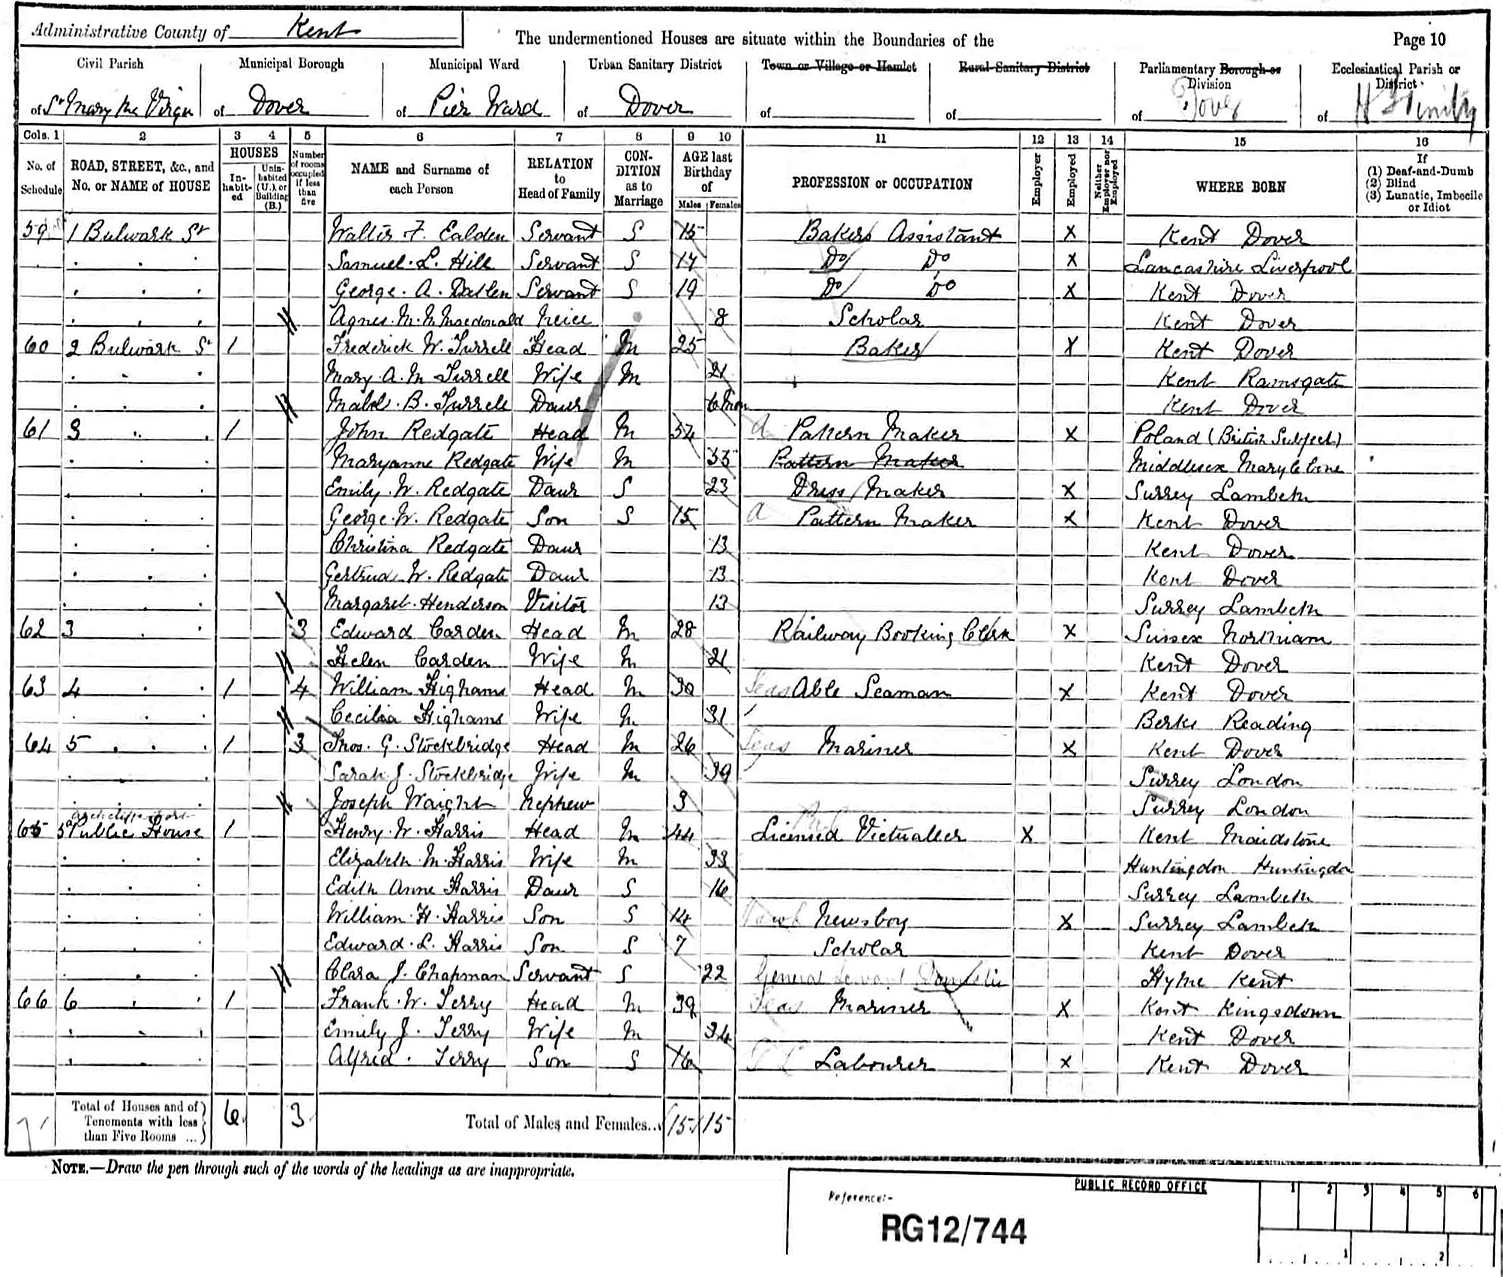 Administrative County of Kent
The undermentioned Houses are situate within the Boundaries of the
Page 10
Civil Parish Municipal Borough Municipal Ward Urban Sanitary District Town or Village or Hamlet Rural Sanitary District Parliamentary Borough or Division Ecclesiastical Parish or District
of St Mary the Virgin of Dover of Pier Ward of Dover of of of Dover of H Trinity
Cols. 1 2 3 4 5 6 7 8 9 10 11 12 13 14 15 16
No. of Schedule ROAD, STREET, &c., and No. or NAME of HOUSE HOUSES In-habit-ed Unin-habited (U.), or Building (B.) Number of rooms occupied if less than five NAME and Surname of each Person RELATION to Head of Family CON-DITION as to Marriage AGE last Birthday of Males Females PROFESSION or OCCUPATION Employer Employed Neither Employer nor Employed WHERE BORN If (1) Deaf-and-Dumb (2) Blind (3) Lunatic, Imbecile or Idiot
59 1 Bulwark St Walter F. Ealden Servant S 15 Bakers Assistant X Kent Dover
Samuel L. Hill Servant S 17 Do Do X Lancashire Liverpool
George A. Datlen Servant S 19 Do Do X Kent Dover
Agnes M. M. Macdonald Neice 8 Scholar Kent Dover
60 2 Bulwark St 1 Frederick W. Turrell Head M 25 Baker X Kent Dover
Mary A. M. Turrell Wife M 21 Kent Ramsgate
Mabel B. Turrell Daur 6 Mon Kent Dover
61 3 1 John Redgate Head M 54 Pattern Maker X Poland (British Subject)
Maryanne Redgate Wife M 55 Pattern Maker Middlesex Marylebone
Emily W. Redgate Daur S 23 Dress Maker X Surrey Lambeth
George W. Redgate Son S 15 Pattern Maker X Kent Dover
Christina Redgate Daur 13 Kent Dover
Gertrude W. Redgate Daur 13 Kent Dover
Margaret Henderson Visitor 13 Surrey Lambeth
62 3 3 Edward Carden Head M 28 Railway Booking Clerk X Sussex Northiam
Helen Carden Wife M 21 Kent Dover
63 4 1 4 William Highams Head M 30 Seas Able Seaman X Kent Dover
Cecilia Highams Wife M 31 Berks Reading
64 5 1 3 Thos. G. Stockbridge Head M 26 Seas Mariner X Kent Dover
Sarah J. Stockbridge Wife M 39 Surrey London
Joseph Waight Nephew 3 Surrey London
65 Archcliffe Fort Public House 1 Henry W. Harris Head M 44 Licensed Victualler X Kent Maidstone
Elizabeth M. Harris Wife M 33 Huntingdon Huntingdon
Edith Anne Harris Daur S 16 Surrey Lambeth
William H. Harris Son S 14 Newsboy X Surrey Lambeth
Edward L. Harris Son S 7 Scholar Kent Dover
Clara J. Chapman Servant S 22 General Servant Domestic Hythe Kent
66 6 1 Frank W. Terry Head M 39 Seas Mariner X Kent Kingsdown
Emily J. Terry Wife M 34 Kent Dover
Alfred Terry Son S 16 Labourer X Kent Dover
Total of Houses and of Tenements with less than Five Rooms ... 6 3 Total of Males and Females... 15 15
NOTE.—Draw the pen through such of the words of the headings as are inappropriate.
PUBLIC RECORD OFFICE
1 2 3 4 5 6
Reference:-
RG12/744
1 2